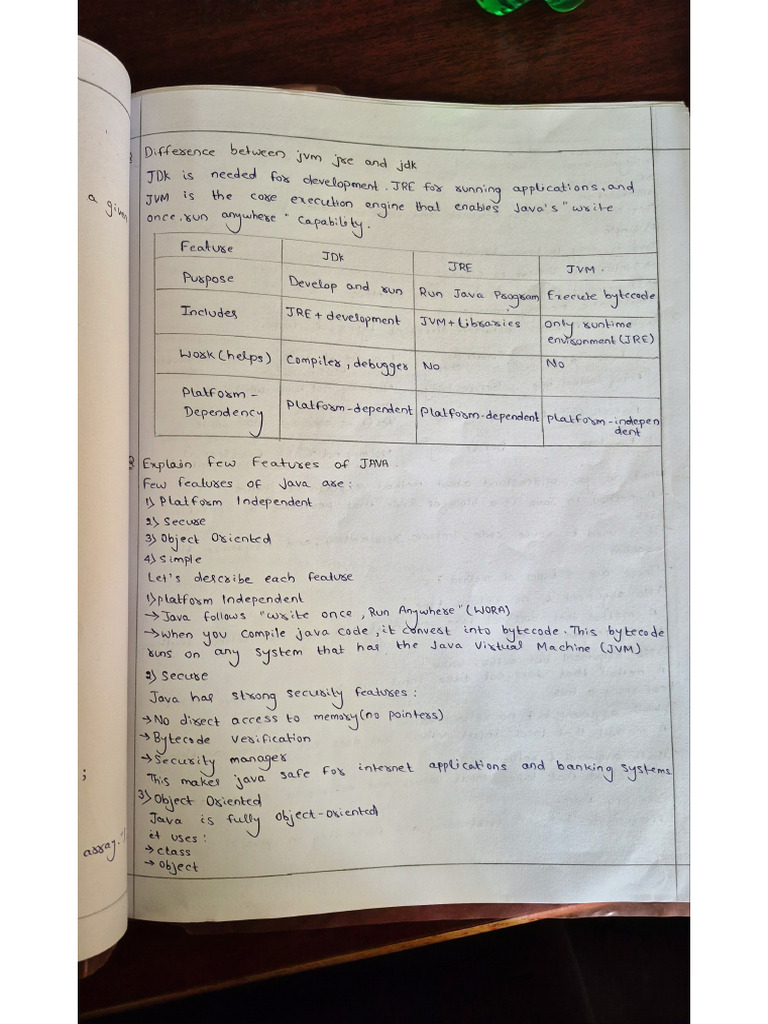 a given
;
array."
Q Difference between jvm jre and jdk
JDK is needed for development. JRE for running applications, and
JVM is the core execution engine that enables Java's "write
once, run anywhere" capability.
Feature JDK JRE JVM.
Purpose Develop and run Run Java Program Execute bytecode
Includes JRE + development JVM + Libraries only runtime
environment (JRE)
Work (helps) Compiler, debugger No No
Platform -
Dependency Platform-dependent Platform-dependent platform-indepen
dent
Q Explain few Features of JAVA.
Few features of Java are:
1) Platform Independent
2) Secure
3) Object Oriented
4) Simple
Let's describe each feature
1) platform Independent
→ Java follows "write once, Run Anywhere" (WORA)
→ when you compile java code, it convert into bytecode. This bytecode
runs on any system that has the Java Virtual Machine (JVM)
2) Secure
Java has strong security features:
→ No direct access to memory (no pointers)
→ Bytecode verification
→ Security manager
This makes java safe for internet applications and banking systems
3) Object Oriented
Java is fully object-oriented
it uses:
→ class
→ object